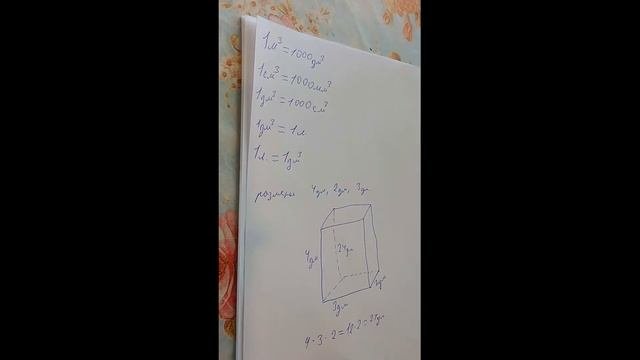 1м³ = 1000дм³
1см³ = 1000мм³
1дм³ = 1000см³
1дм³ = 1л
1л. = 1дм³
размеры 4дм, 2дм, 3дм
24дм
4дм
2дм
3дм
4 · 3 · 2 = 12 · 2 = 24дм